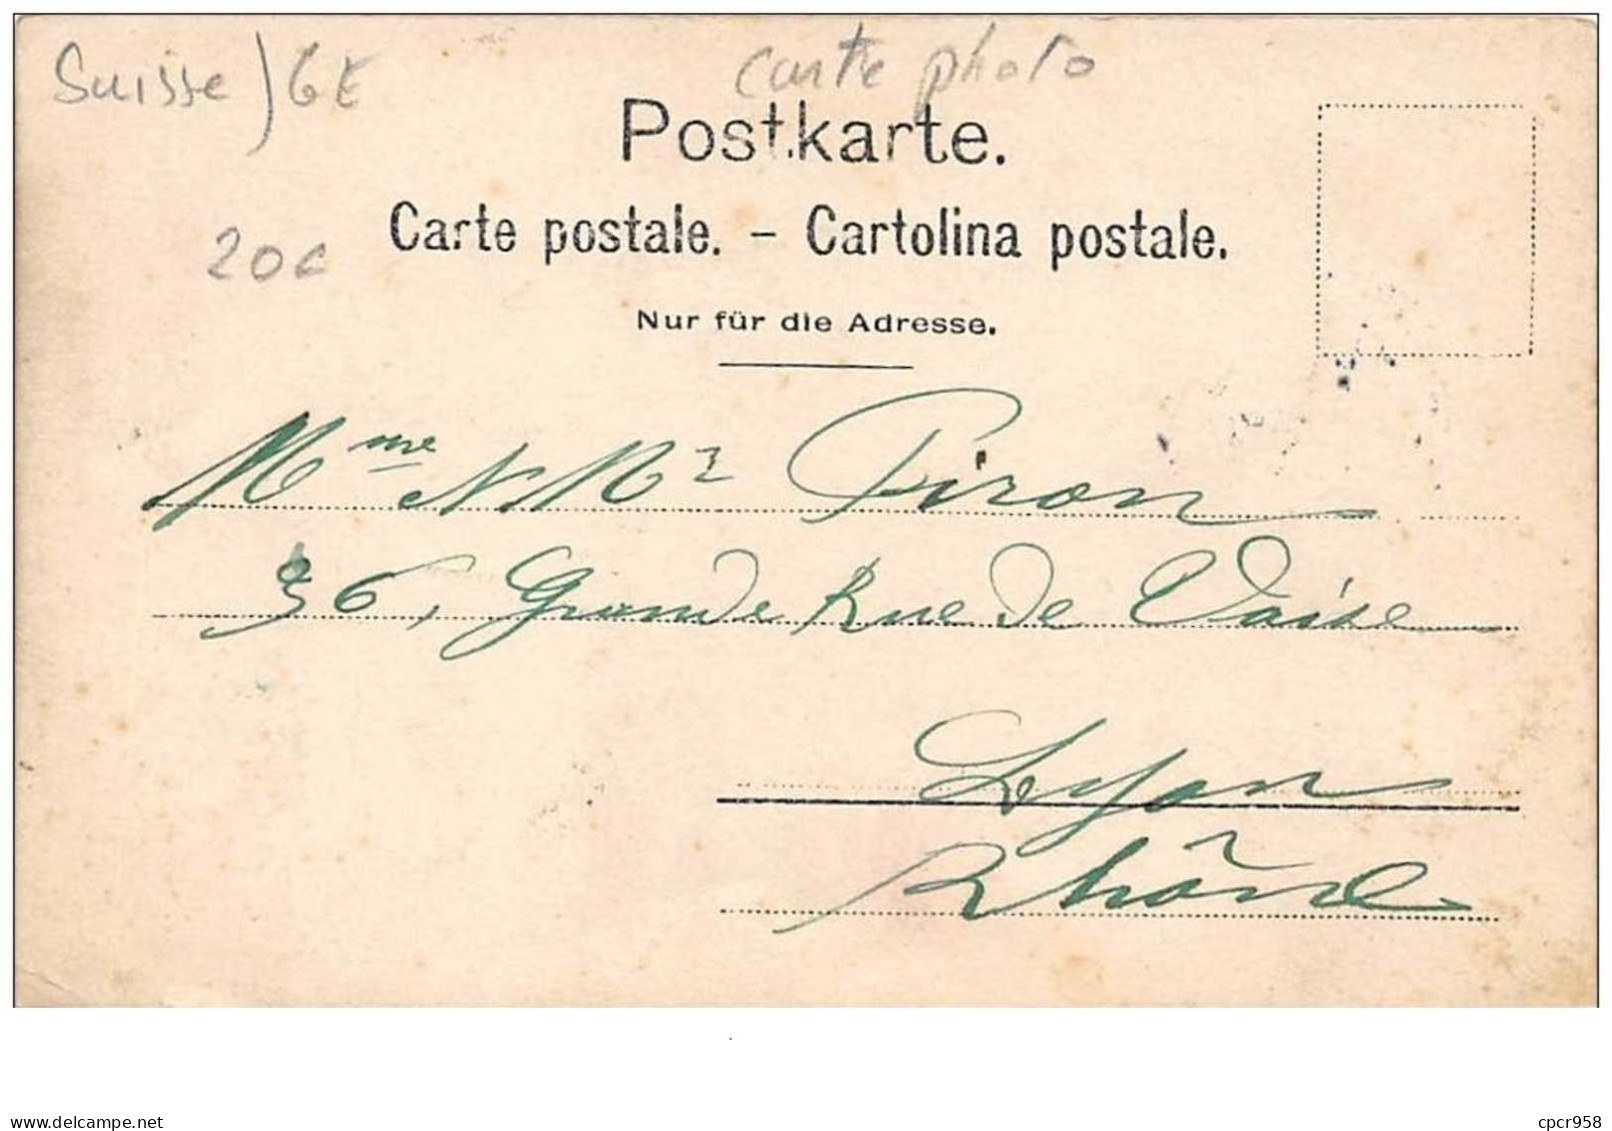 Suisse) GE
carte photo
Postkarte.
Carte postale. – Cartolina postale.
20c
Nur für die Adresse.
Mme & Mr Piron
36, Grande Rue de Vaise
Lyon
Rhône
www.delcampe.net
cpcr958